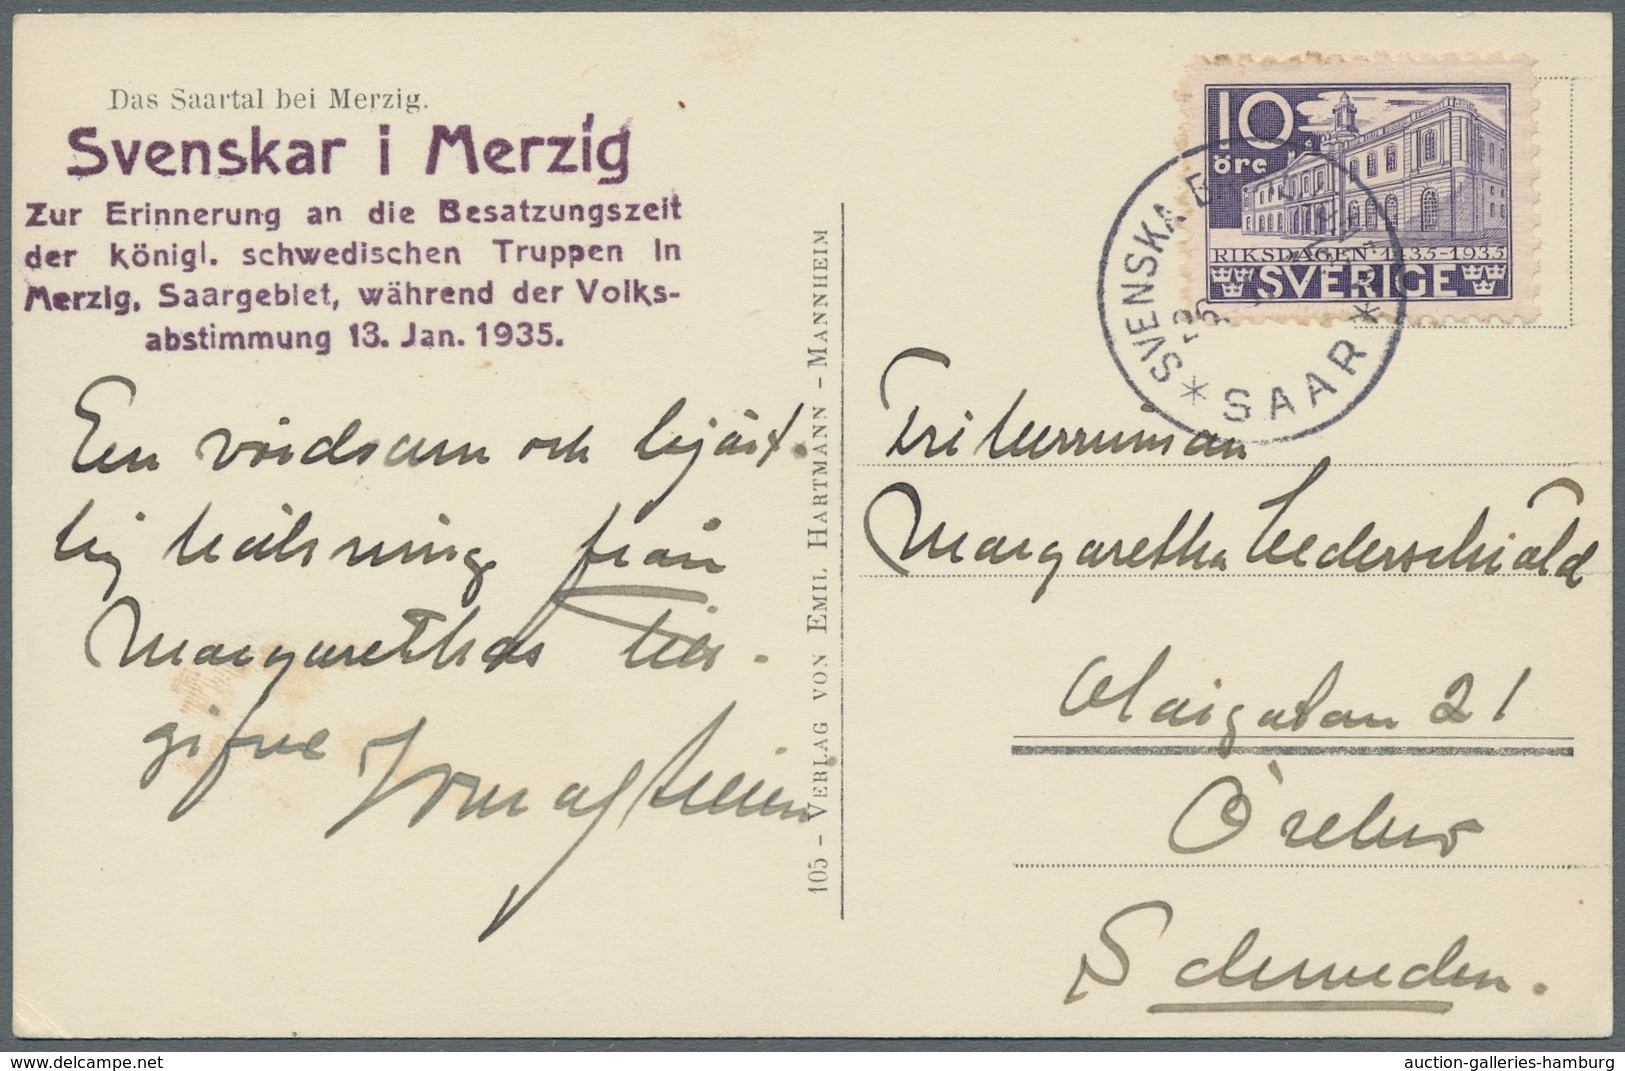 Das Saartal bei Merzig.
Svenskar i Merzig
Zur Erinnerung an die Besatzungszeit
der königl. schwedischen Truppen in
Merzig, Saargebiet, während der Volks-
abstimmung 13. Jan. 1935.
En vördsam och hjärt.
lig hälsning från
Margarethas
105 - VERLAG VON EMIL HARTMANN - MANNHEIM
10
öre
RIKSDAGEN 1435-1935
SVERIGE
SVENSKA
SAAR
Margaretha Cederschiöld
Olaigatan 21
Örebro
Schweden.
auction-galleries-hamburg